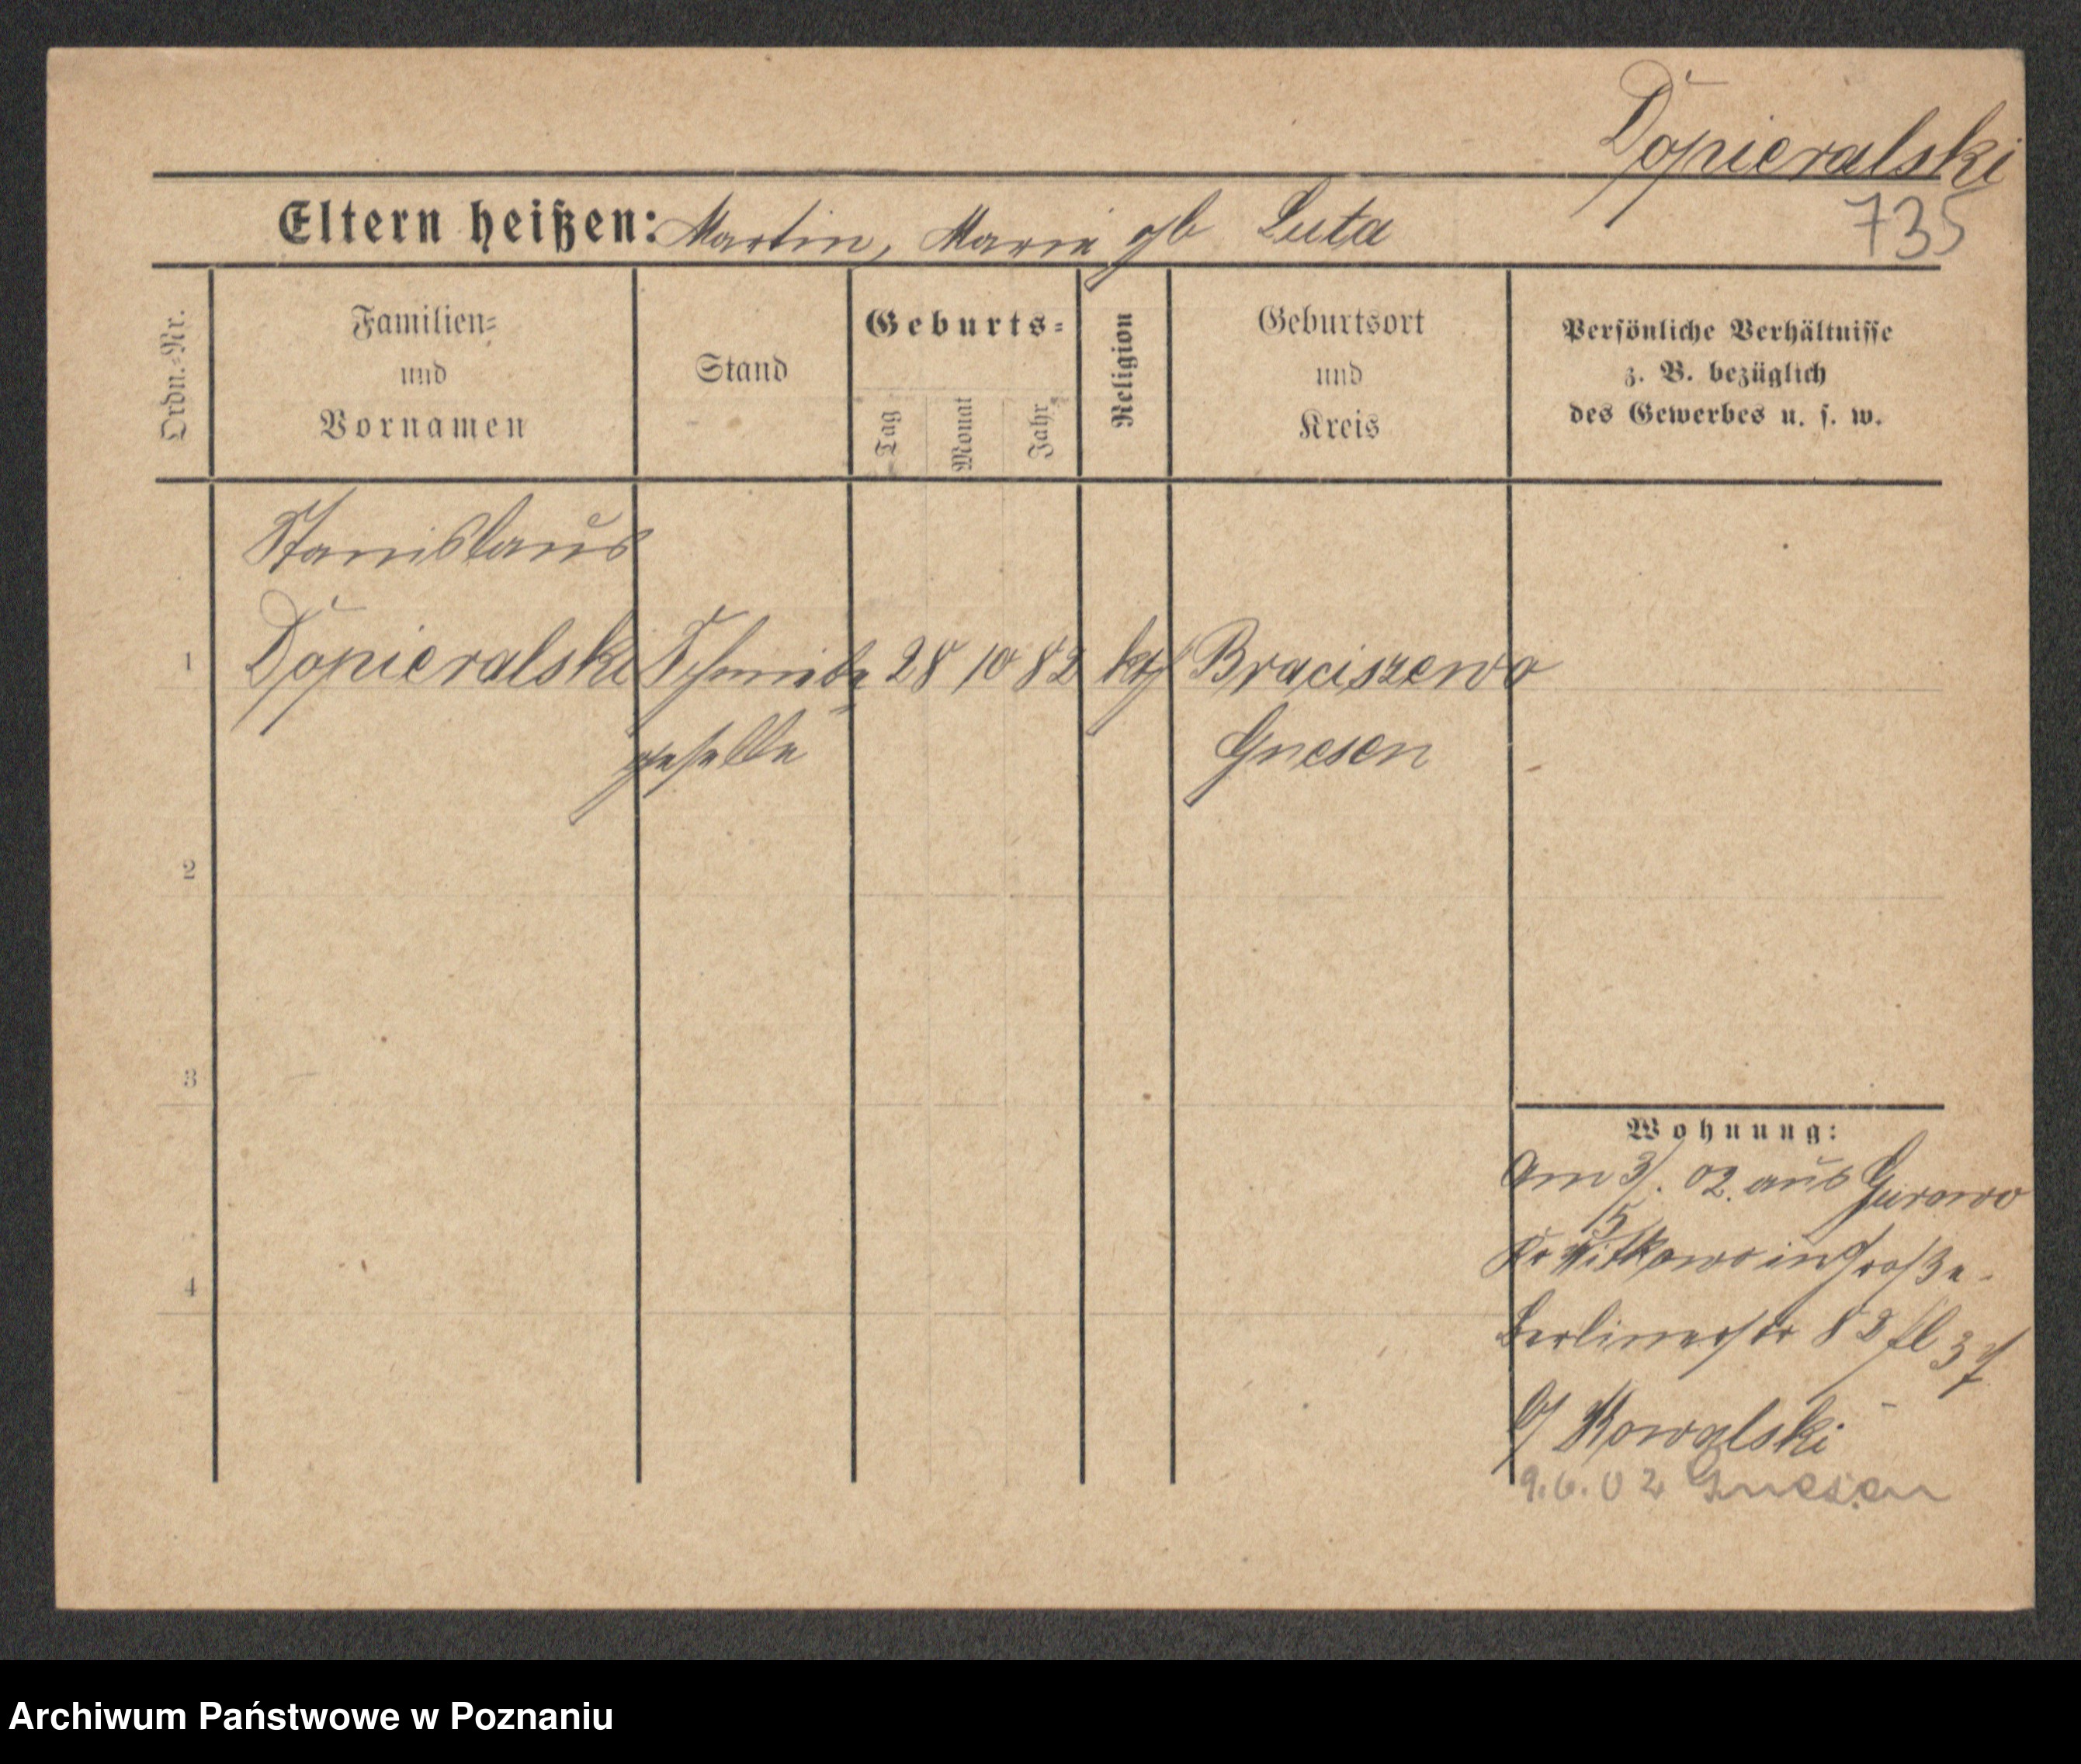 Dopieralski
Eltern heißen: Martin, Marie gb Luta
735
Ordn.-Nr.
Familien-
und
Vornamen
Stand
Geburts-
Tag
Monat
Jahr
Religion
Geburtsort
und
Kreis
Persönliche Verhältnisse
z. B. bezüglich
des Gewerbes u. s. w.
Stanislaus
1 Dopieralski Schmiede 28 10 82 kth Braciszewo
geselle Gnesen
2
3
4
Wohnung:
Am 3/5. 02. aus Gurowo
Kr Witkowo in Große-
Berlinerstr 82
b/ Kowalski
9.6.02 Gnesen
Archiwum Państwowe w Poznaniu